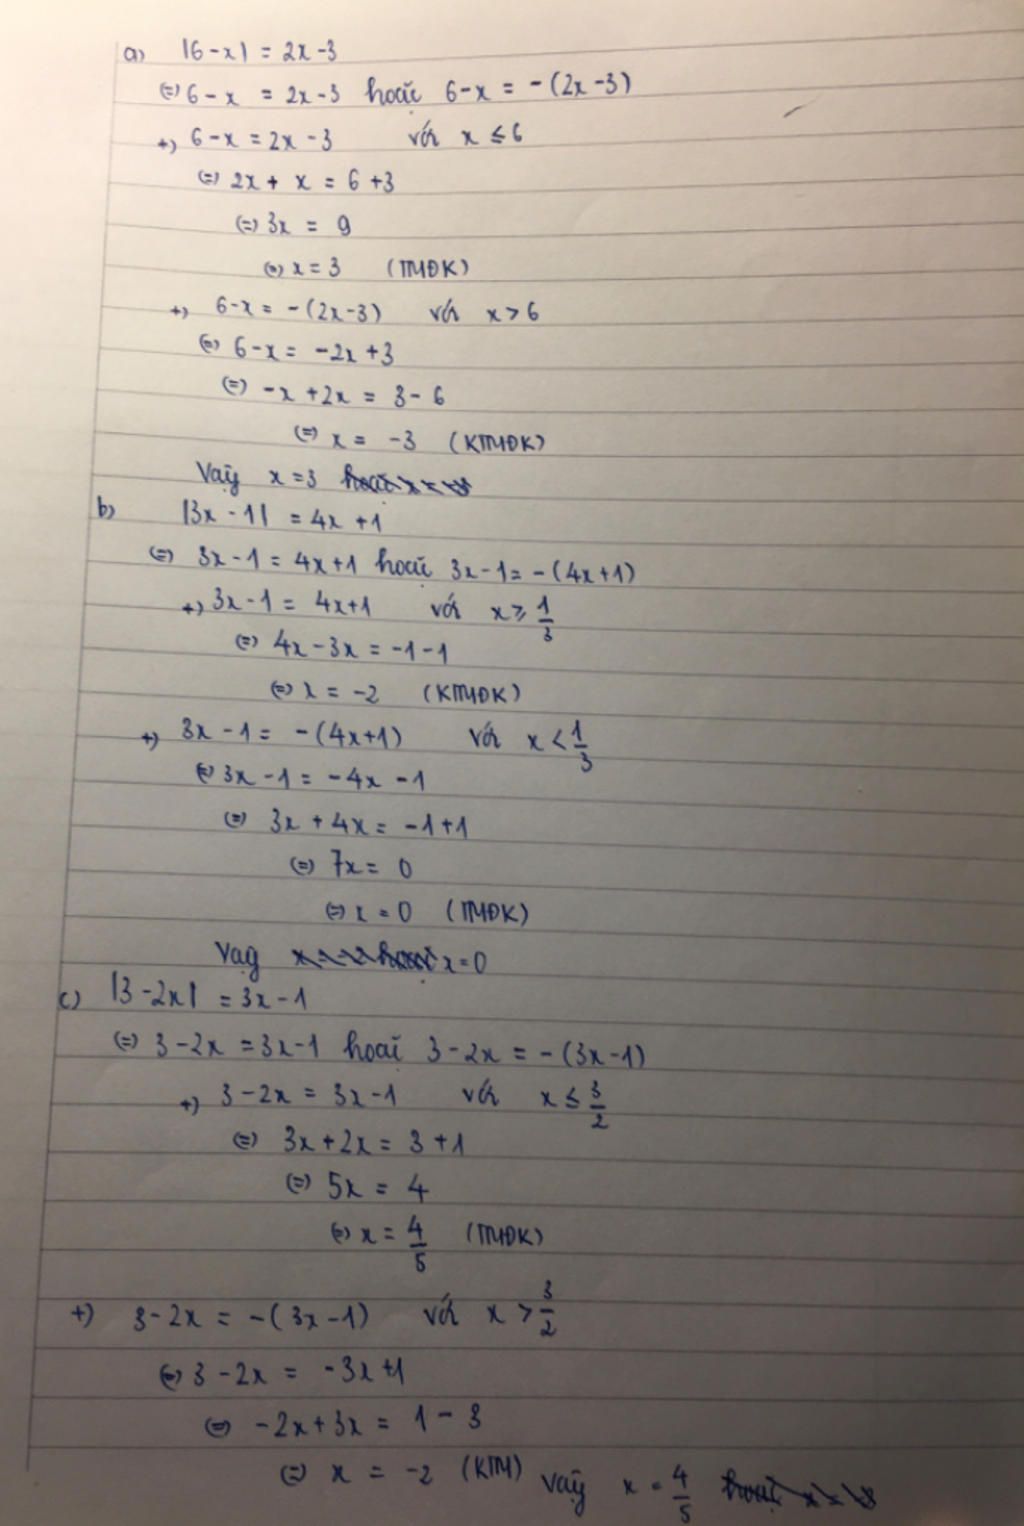 a) |6-x| = 2x-3
(=) 6-x = 2x-3 hoặc 6-x = -(2x-3)
+) 6-x = 2x-3 với x ≤ 6
(=) 2x + x = 6+3
(=) 3x = 9
(=) x = 3 (TMĐK)
+) 6-x = -(2x-3) với x > 6
(=) 6-x = -2x+3
(=) -x+2x = 3-6
(=) x = -3 (KTMĐK)
Vậy x=3
b) |3x-1| = 4x+1
(=) 3x-1 = 4x+1 hoặc 3x-1 = -(4x+1)
+) 3x-1 = 4x+1 với x ≥ 1/3
(=) 4x-3x = -1-1
(=) x = -2 (KTMĐK)
+) 3x-1 = -(4x+1) với x < 1/3
(=) 3x-1 = -4x-1
(=) 3x+4x = -1+1
(=) 7x = 0
(=) x = 0 (TMĐK)
Vậy x=0
c) |3-2x| = 3x-1
(=) 3-2x = 3x-1 hoặc 3-2x = -(3x-1)
+) 3-2x = 3x-1 với x ≤ 3/2
(=) 3x+2x = 3+1
(=) 5x = 4
(=) x = 4/5 (TMĐK)
+) 3-2x = -(3x-1) với x > 3/2
(=) 3-2x = -3x+1
(=) -2x+3x = 1-3
(=) x = -2 (KTM) vậy x = 4/5